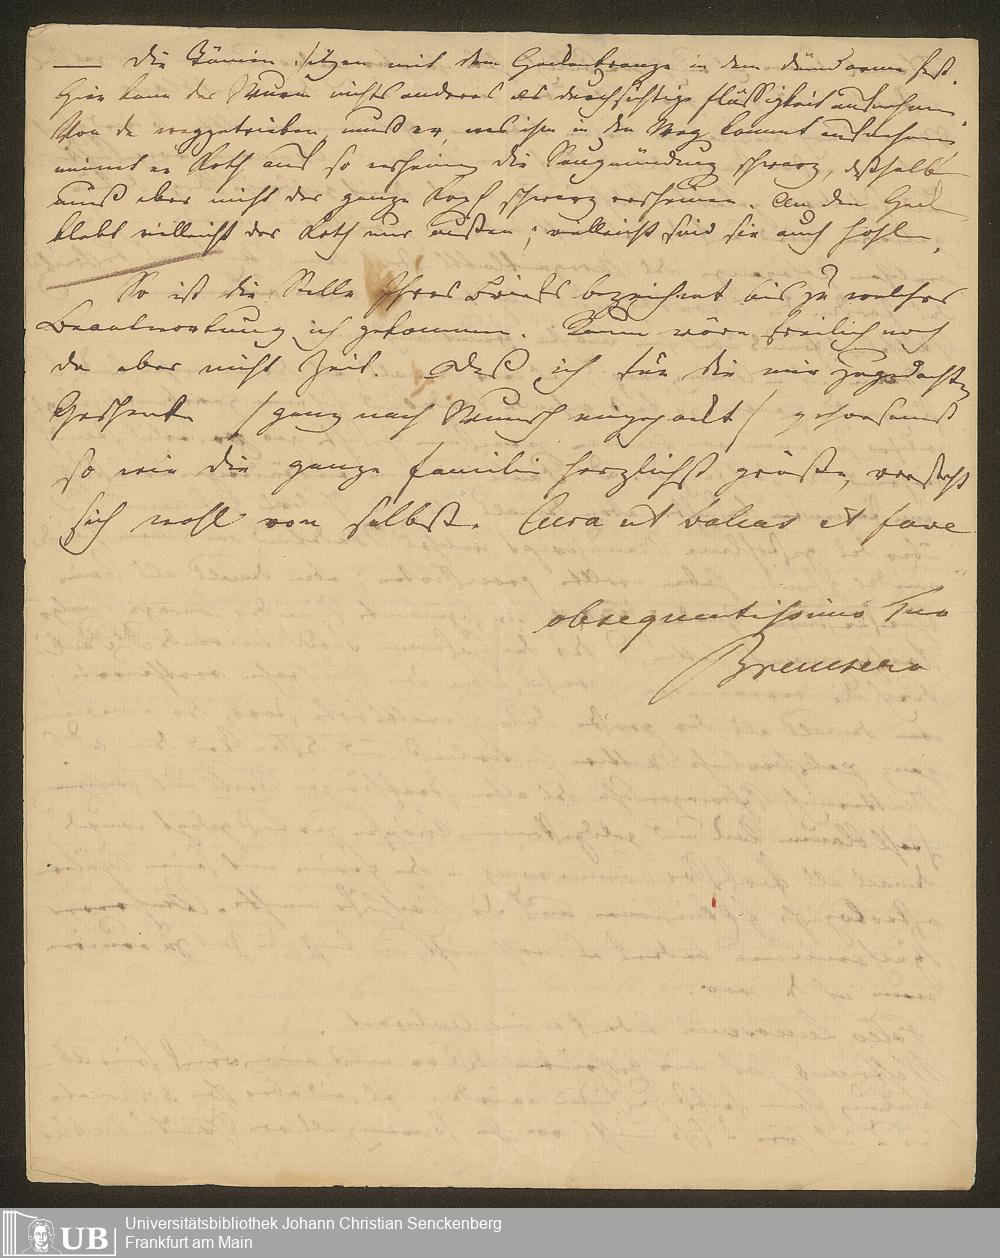 — Die Tänien sitzen mit dem Hackenkranze in dem Dünndarme fest.
Hier kann der Wurm nichts anderes als durchsichtige Flüssigkeit aufnehmen.
Von da weggetrieben, muß er, was ihm in den Weg kommt aufnehmen,
nimmt er Koth auf so erscheint die Saugmündung schwarz, deßhalb
muß aber nicht der ganze Kopf schwarz erscheinen. An den
klebt vielleicht der Koth nur außen; vielleicht sind sie auch hohl.
So ist die Stelle Ihres Briefs bezeichnet bis zu welcher
Beantwortung ich gekommen. Raum wäre freilich noch
da aber nicht Zeit. Daß ich für die mir zugedachten
Geschenke (ganz nach Wunsch eingepackt) gehorsamst
so wie die ganze Familie herzlichst grüße, versteht
sich wohl von selbst. Cura ut valeas et fave
obsequentissimo Tuo
Bremsero
Universitätsbibliothek Johann Christian Senckenberg
Frankfurt am Main
UB